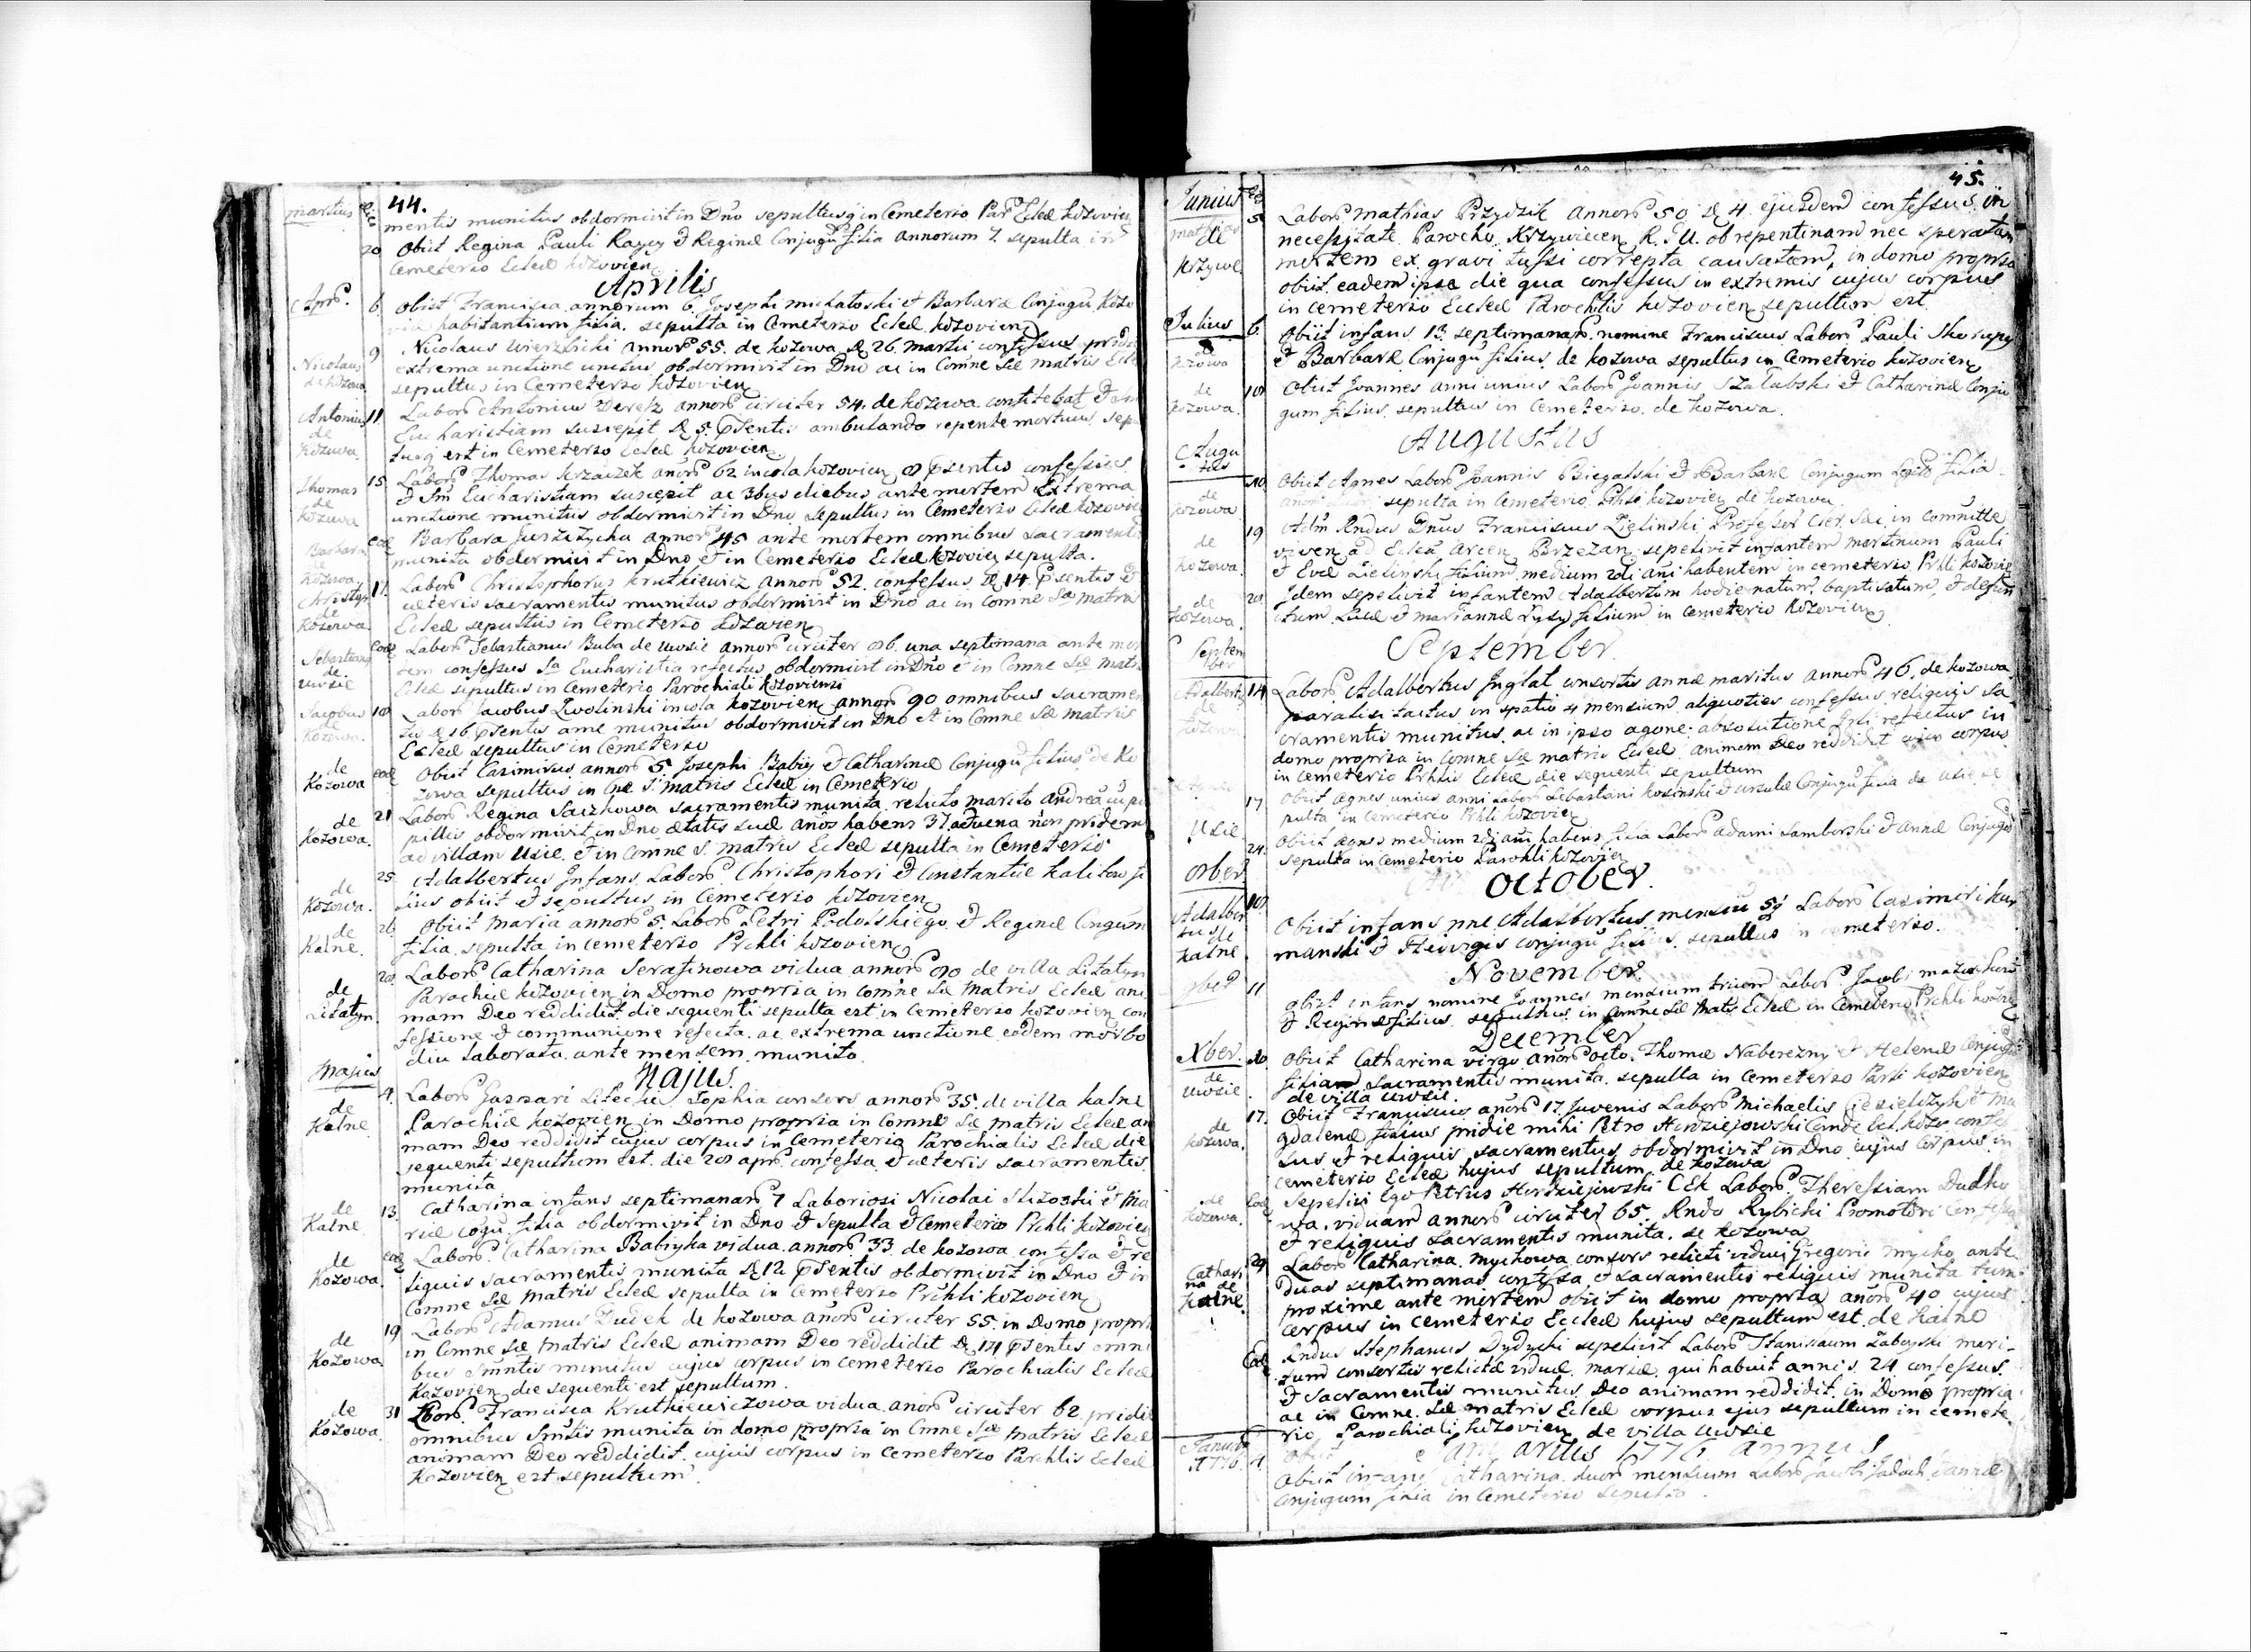 44.
Martius Die
mentis munitus obdormivit in Dno sepultusq in Cemeterio Par Eclae Kozovien
20 Obiit Regina Pauli Razey et Reginae Conjugu filia annorum 7. sepulta in
Cemeterio Eclae Kozovien
Aprilis
Apr. 6. Obiit Francisca annorum 6 Josephi Michaloski et Barbarae Conjugu Kozo
habitantium filia. sepulta in Cemeterio Eclae Kozovien
Nicolaus de Kozowa 9 Nicolaus Wierzbicki annor 55. de Kozowa d 26 Martii confessus pridie
extrema unctione unctus obdormivit in Dno ac in Comne Sae Matris Ecle
sepultus in Cemeterio Kozovien
Antonius de Kozowa. 11. Labor Antonius Deretz annor circiter 54. de Kozowa confitebat et
Eucharistiam suscepit d 5 psentis ambulando repente mortuus sepu
tusq est in Cemeterio Eclae Kozovien
Thomas de Kozowa 15. Labor Thomas Krzaczek anor 62 incola Kozovien 8 psentis confessus
et Sm Eucharistiam suscepit ac 3bus diebus ante mortem Extrema
unctione munitus obdormivit in Dno sepultus in Cemeterio Eclae Kozovie
Barbara de Kozowa ead Barbara annor 45 ante mortem omnibus Sacramenti
munita obdormivit in Dno et in Cemeterio Eclae Kozovien sepulta.
Christop de Kozowa 17. Labor Christophorus Krutkiewicz annor 52. confessus d 14. psentis et
caeteris sacramentis munitus obdormivit in Dno ac in Comne Sa Matris
Eclae sepultus in Cemeterio Kozovien
Sebastianus de Uwsie ead Labor Sebastianus Buba de Uwsie annor circiter 86. una septimana ante mor
tem confessus Sa Eucharistia refectus obdormivit in Dno et in Comne Sae Matri
Eclae sepultus in Cemeterio Parochiali Kozoviensi
Jacobus Kozowa. 18 Labor Jacobus Zwolinski incola Kozovien annor 90 omnibus sacramen
tis d 16 psentis a me munitus obdormivit in Dno et in Comne Sae Matris
Eclae sepultus in Cemeterio
de Kozowa ead Obiit Casimirus annor 5 Josephi Babiy et Catharinae Conjugu filius de Ko
zowa sepultus in Cne S. Matris Eclae in Cemeterio
de Kozowa. 21 Labor Regina Saczkowa sacramentis munita relicto marito Andrea cu pu
pillis obdormivit in Dno aetatis suae anor habens 37. advena non pridem
ad villam Usie. et in Comne S. Matris Eclae sepulta in Cemeterio
de Kozowa. 25. Adalbertus Infans Labor Christophori et Constantiae fi
lius obiit et sepultus in Cemeterio Kozovien
de Kalne. 26. Obiit Maria annor 5. Labor Petri Podolskiego et Reginae Cngum
filia sepulta in Cemeterio Prchli Kozovien
de Litatyn. 28. Labor Catharina Serafinowa vidua annor 80 de villa Litatyn
Parochiae Kozovien in Domo propria in Comne Sae Matris Eclae ani
mam Deo reddidit die sequenti sepulta est in Cemeterio Kozovien con
fessione et communione refecta ac extrema unctione eodem morbo
diu laborata ante mensem munito
Majus
Majus.
de Kalne 4. Labor Gaspari Sophia consors annor 35. de villa Kalne
Parochiae Kozovien in Domo propria in Comne Sae Matris Eclae ani
mam Deo reddidit cujus corpus in Cemeterio Parochialis Eclae die
sequenti sepultum est. die 28 apr confessa et caeteris sacramentis
munita
de Kalne 13. Catharina infans septimanar 7 Laboriosi Nicolai et Ma
riae Cogu filia obdormivit in Dno et sepulta et Cemeterio Prchli Kozovien
de Kozowa ead Labor Catharina Babiyka vidua annor 33. de Kozowa confessa et re
liquis sacramentis munita d 12 psentis obdormivit in Dno et in
Comne Sae Matris Eclae sepulta in Cemeterio Prchli Kozovien
de Kozowa 19 Labor Adamus Dudek de Kozowa anor circiter 55. in Domo propri
in Comne Sae Matris Eclae animam Deo reddidit d 14 psentis omni
bus Smntis munitus cujus corpus in Cemeterio Parochialis Eclae
Kozovien die sequenti est sepultum.
de Kozowa. 31 Labor Francisca Krutkiewiczowa vidua anor circiter 62 pridie
omnibus Smtis munita in domo propria in Cmne Sae Matris Eclae
animam Deo reddidit. cujus corpus in Cemeterio Parchlis Eclae
Kozovien est sepultum
45.
Junius
Mathias de Krzywe 5 Labor Mathias Przydzik annor 50 d 4 ejusdem confessus in
necessitate Parocho Krzywiecen R. Gu. ob repentinam nec speratam
mortem ex gravi tussi correpta causatam, in domo propria
obiit eadem ipsa die qua confessus in extremis cujus corpus
in cemeterio Eclae Parochlis Kozovien sepultum est
Julius 6 Obiit infans 13. septimanar nomine Franciscus Labor Pauli Skorupy
Kozowa et Barbarae Conjugu filius de Kozowa sepultus in Cemeterio Kozovien
de Kozowa. 10. Obiit Joannes anni unius Labor Joannis Szalubski et Catharinae Conju
gum filius sepultus in Cemeterio de Kozowa.
Augustus
Augustus
de Kozowa 10 Obiit Agnes Labor Joannis Biegalski et Barbarae Conjugum legit filia
sepulta in Cemeterio Prhli Kozovien de Kozowa
de Kozowa. 19 Adm Rndus Dnus Franciscus Zielinski Professor in Committe
ad Eclea Arcen Brzezan sepelivit infantem Martinum Pauli
et Evae Zielinski filium medium 2di ani habentem in cemeterio Prhli Kozovie
de Kozowa. 20 Idem sepelivit infantem Adalbertum hodie natum, baptisatum, et defun
ctum Lucae et Mariannae filium in Cemeterio Kozovien
September
September
Adalbert de Kozowa 14 Labor Adalbertus Juglat consortis Annae maritus annor 46. de Kozowa
paralisi tactus in spatio 4 mensium aliquoties confessus reliquis Sa
cramentis munitus ac in ipso agone absolutione refectus in
domo propria in Comne Sae Matris Eclae animam Deo reddidit cujus corpus
in Cemeterio Prhlis Eclae die sequenti sepultum
17 Obiit Agnes unius anni Labor Sebastiani Kosinski et Ursulae Conjugu filia de Usie se
pulta in Cemeterio Prhli Kozovien
Usie 24. Obiit Agnes medium 2di ani habens filia Labor Adami Samborski et Annae Conjugu
sepulta in Cemeterio Parohli Kozovien
8ber.
October.
Adalbertus de Kalne 10. Obiit infans nne Adalbertus mensiu 5q Labor Casimiri Kur
manski et Hedvigis conjugu filius sepultus in cemeterio.
November.
9ber 11 Obiit infans nomine Joannes mensium trium Labor Jacobi
et Reginae filius sepultus in Comne Sae Mats Eclae in Cemeterio Prchli Kozovien
December
Xber. de Uwsie. 10 Obiit Catharina virgo anor octo. Thomae Naberezny et Helenae Conjugu
filia Sacramentis munita. sepulta in Cemeterio Parhi Kozovien
de villa Uwsie.
de Kozowa. 17. Obiit Franciscus anor 17 Juvenis Labor Michaelis et Ma
gdalenae filius pridie mihi Petro Herdziejowski confes
sus et reliquis sacramentis obdormivit in Dno cujus corpus in
cemeterio Eclae hujus sepultum. de Kozowa
de Kozowa. ead Sepelivi Ego Petrus Herdziejowski CEK Labor Theressiam Dudko
wa. viduam annor circiter 65. Rndo Rybicki Promotori confessa
et reliquis sacramentis munita. de Kozowa
Catharina de Kalne 29 Labor Catharina Mychowa consors relicti vidui Gregorii Mycho ante
duas septimanas confessa et sacramentis reliquis munita tum
proxime ante mortem obiit in domo propria anor 40 cujus
corpus in cemeterio Eccleae hujus sepultum est. de Kalne
ead Rndus Stephanus Dydycki sepelivit Labor Stanislaum Zaboyski mari-
tum consortis relictae viduae Mariae, qui habuit annis 24 confessus
et sacramentis munitus. Deo animam reddidit in Domo propria
ac in Comne. Sae Matris Eclae corpus ejus sepultum in cemete
rio Parochiali Kozovien de villa Uwsie
Januarius 1776 annus
Januar 1776. 1 Obiit infans Catharina duor mensium Labor Jacobi et Annae
Conjugum filia in Cemeterio sepulta